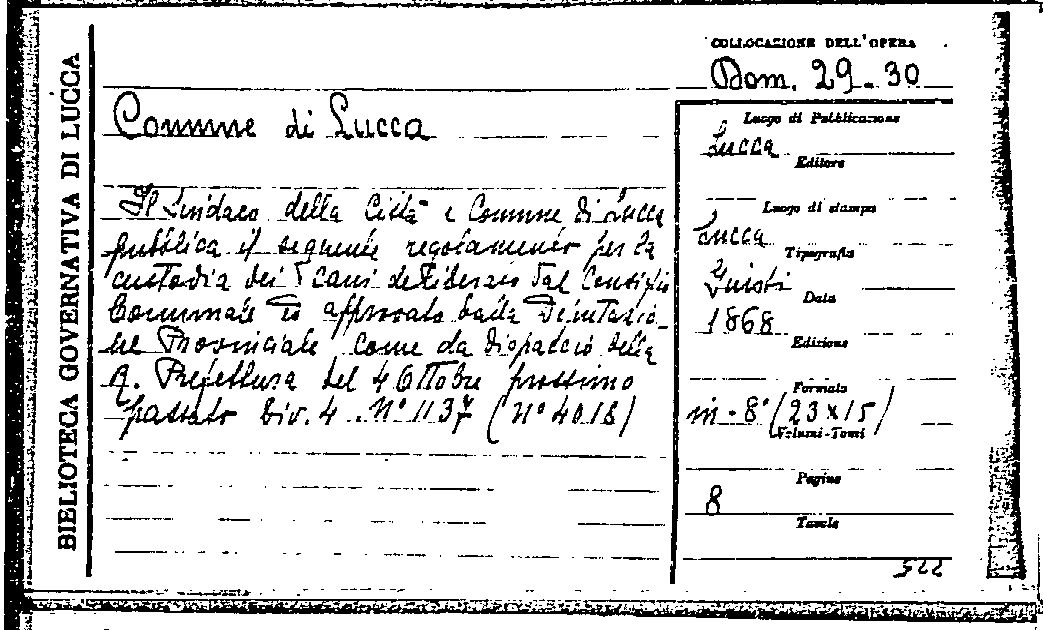 BIBLIOTECA GOVERNATIVA DI LUCCA
COLLOCAZIONE DELL'OPERA
Dom. 29-30
Comune di Lucca
Il Sindaco della Città e Comune di Lucca
pubblica il seguente regolamento per la
custodia dei cani deliberato dal Consiglio
Comunale ed approvato dalla Deputazio-
ne Provinciale come da dispaccio della
R. Prefettura del 4 Ottobre prossimo
passato Div. 4 N° 1137 (N° 4018)
Luogo di Pubblicazione
Lucca
Editore
Luogo di stampa
Lucca
Tipografia
Giusti
Data
1868
Edizione
Formato
in-8° (23x15)
Volumi-Tomi
Pagine
8
Tavole